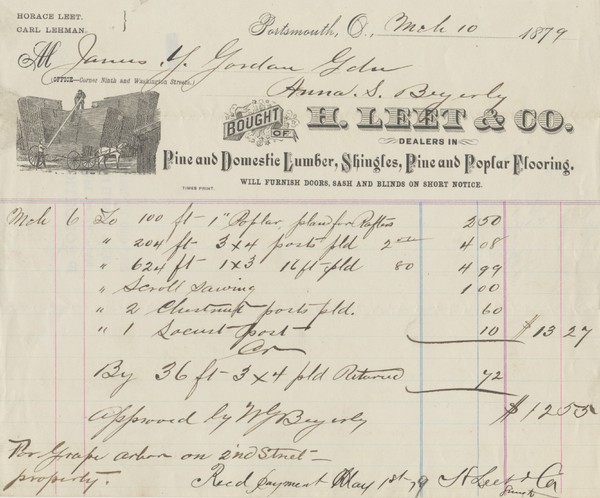 HORACE LEET.
CARL LEHMAN.
Portsmouth, O., Mch 10 1879
M James Y. Gordon Gdn
(OFFICE—Corner Ninth and Washington Streets.)
Anna S. Beyerly
BOUGHT OF H. LEET & CO.
DEALERS IN
Pine and Domestic Lumber, Shingles, Pine and Poplar Flooring,
WILL FURNISH DOORS, SASH AND BLINDS ON SHORT NOTICE.
TIMES PRINT.
Mch 6 To 100 ft 1" Poplar pland for Rafters 2 50
" 204 ft 3x4 posts pld 2 00 4 08
" 624 ft 1x3 16 ft pld 80 4 99
" Scroll Sawing 1 00
" 2 Chestnut posts pld. 60
" 1 Locust post 10 $13 27
Cr
By 36 ft 3x4 pld Returned 72
$12 55
Approved by WG Beyerly
For Grape arbor on 2nd Street
property.
Recd payment May 1st 79 H Leet & Co